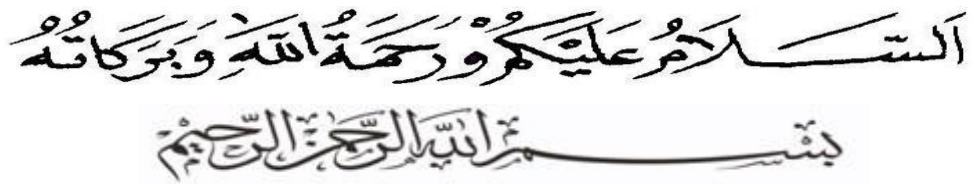 اَلسَّلَامُ عَلَيْكُمْ وَرَحْمَةُ اللهِ وَبَرَكَاتُهُ
بسم الله الرحمن الرحيم